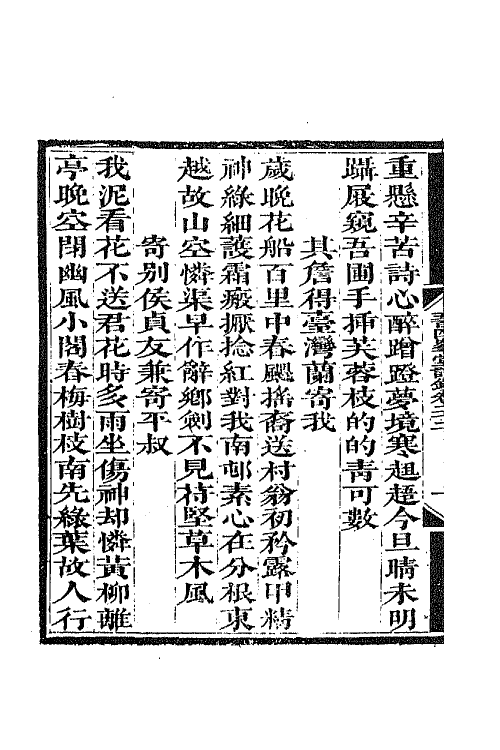 重懸辛苦詩心醉蹭蹬夢境寒趄趑今旦晴未明
躡屐窺吾圃手揷芙蓉枝的的靑可數
其詹得臺灣蘭寄我
歲晚花船百里中春颸搖裔送村翁初矜露甲精
神綠細護霜瘢擫捻紅對我南邨素心在分根東
越故山空憐渠早作辭鄉劍不見柿堅草木風
寄別侯貞友兼寄平叔
我泥看花不送君花時亥雨坐傷神却憐黃柳離
亭晚空閉幽風小閣春梅樹枝南先綠葉故人行